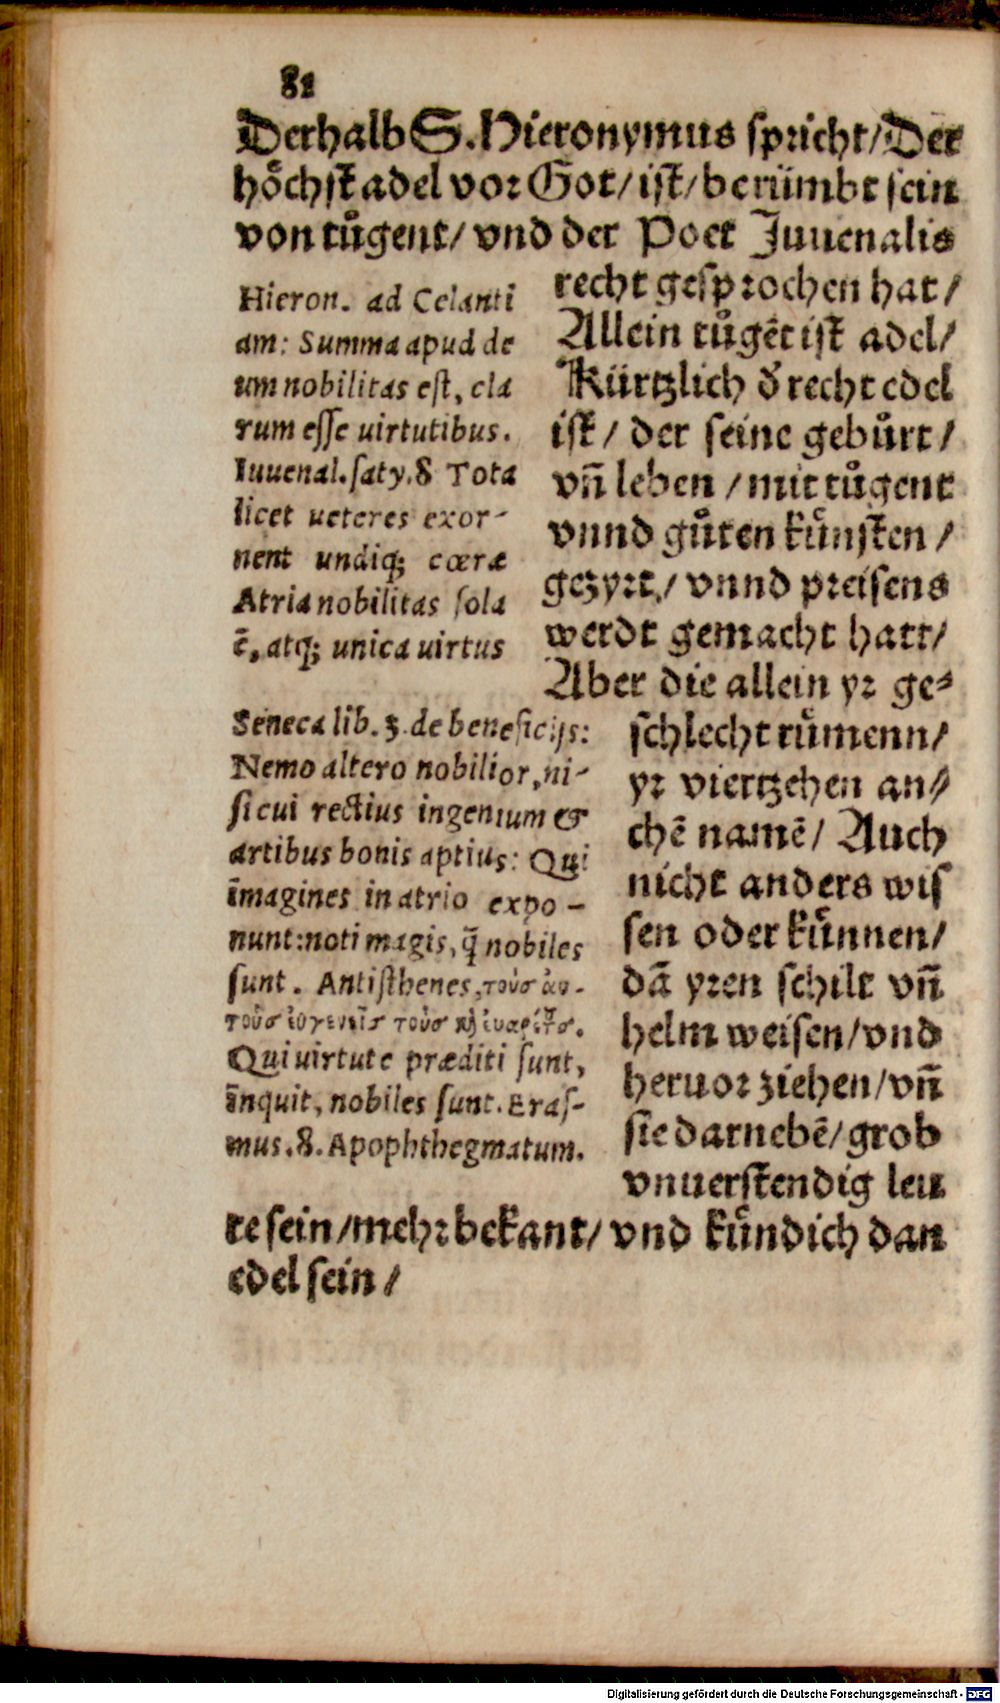 82
Derhalb S. Hieronymus spricht/Der
hoͤchst adel vor Got/ist/beruͤmbt sein
von tuͤgent/vnd der Poet Juuenalis
recht gesprochen hat/
Allein tuͤgēt ist adel/
Kürtzlich d' recht edel
ist/der seine gebuͤrt/
vn̄ leben/mit tuͤgent
vnnd guͦten kuͤnsten/
gezyrt/vnnd preisens
werdt gemacht hatt/
Aber die allein yr ge⸗
schlecht ruͤmenn/
yr viertzehen an⸗
chē namē/Auch
nicht anders wis
sen oder kuͤnnen/
dā yren schilt vn̄
helm weisen/vnd
heruor ziehen/vn̄
sie darnebē/grob
vnuerstendig leu
te sein/mehr bekant/vnd kuͤndich dan
edel sein/
Hieron. ad Celanti
am: Summa apud de
um nobilitas est, cla
rum esse uirtutibus.
Iuuenal. saty. 8 Tota
licet ueteres exor-
nent undiq; cœræ
Atria nobilitas sola
ē, atq; unica uirtus
Seneca lib. 3. de beneficijs:
Nemo altero nobilior, ni-
si cui rectius ingenium &
artibus bonis aptius: Qui
imagines in atrio expo-
nunt: noti magis, q̄ nobiles
sunt. Antisthenes, τοὺσ αυ-
τοὺσ τοὺσ
Qui uirtute præditi sunt,
inquit, nobiles sunt. Eras-
mus. 8. Apophthegmatum.
Digitalisierung gefördert durch die Deutsche Forschungsgemeinschaft - DFG